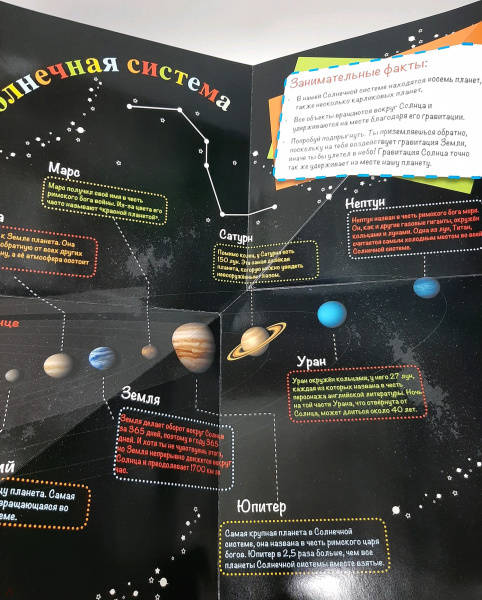 лнечная система
Занимательные факты:
В нашей Солнечной системе находятся восемь планет,
также несколько карликовых планет.
Все объекты вращаются вокруг Солнца и
удерживаются на месте благодаря его гравитации.
Попробуй подпрыгнуть. Ты приземляешься обратно,
поскольку на тебя воздействует гравитация Земли,
иначе ты бы улетел в небо! Гравитация Солнца точно
так же удерживает на месте нашу планету.
Марс
Марс получил своё имя в честь
римского бога войны. Из-за цвета его
часто называют «красной планетой».
Нептун
Нептун назван в честь римского бога моря.
Он, как и другие газовые гиганты, окружён
кольцами и лунами. Одна из лун, Титан,
считается самым холодным местом во всей
Солнечной системе.
а
к Земле планета. Она
обратную от всех других
ну, а её атмосфера состоит
Сатурн
Помимо колец, у Сатурна есть
150 лун. Это самая далёкая
планета, которую можно увидеть
невооружённым глазом.
нце
Уран
Уран окружён кольцами, у него 27 лун,
каждая из которых названа в честь
персонажа английской литературы. Ночь
на той части Урана, что отвёрнута от
Солнца, может длиться около 40 лет.
Земля
Земля делает оборот вокруг Солнца
за 365 дней, поэтому в году 365
дней. И хотя ты не чувствуешь этого,
но Земля непрерывно движется вокруг
Солнца и преодолевает 1700 км в
час.
ий
цу планета. Самая
вращающаяся во
еме.
Юпитер
Самая крупная планета в Солнечной
системе, она названа в честь римского царя
богов. Юпитер в 2,5 раза больше, чем все
планеты Солнечной системы вместе взятые.